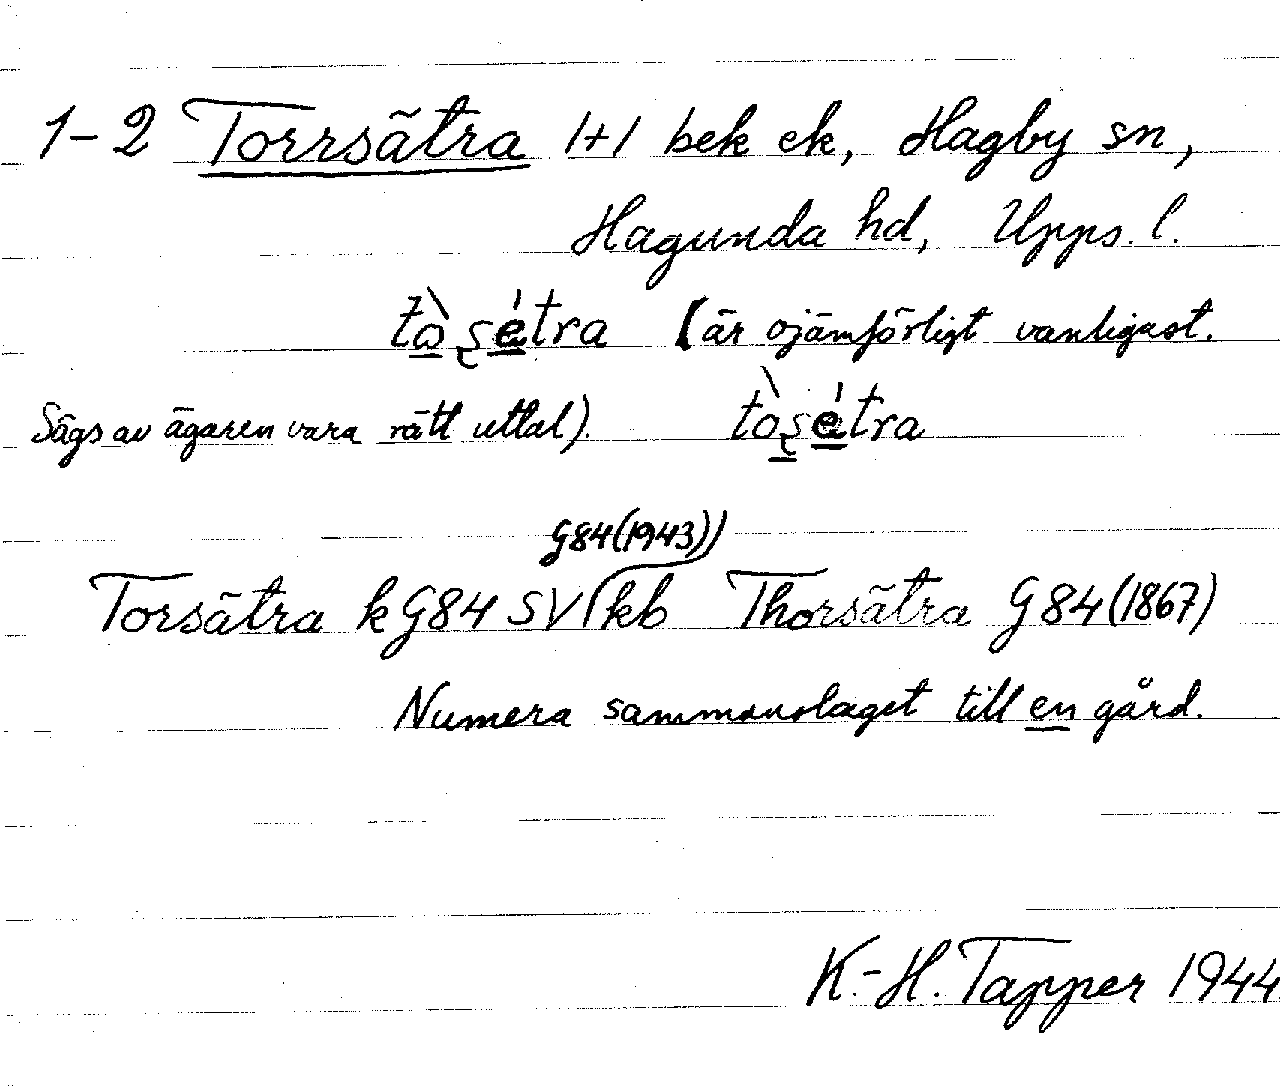 1-2 Torrsätra 1+1 bek ek, Hagby sn,
Hagunda hd, Upps. l.
tò̱ʂé̱tra (är ojämförligt vanligast.
Sägs av ägaren vara rätt uttal). tòʂé̱tra
G84(1943))
Torsätra k G84 SV kb Thorsätra G84(1867)
Numera sammanslaget till en gård.
K.-H. Tapper 1944